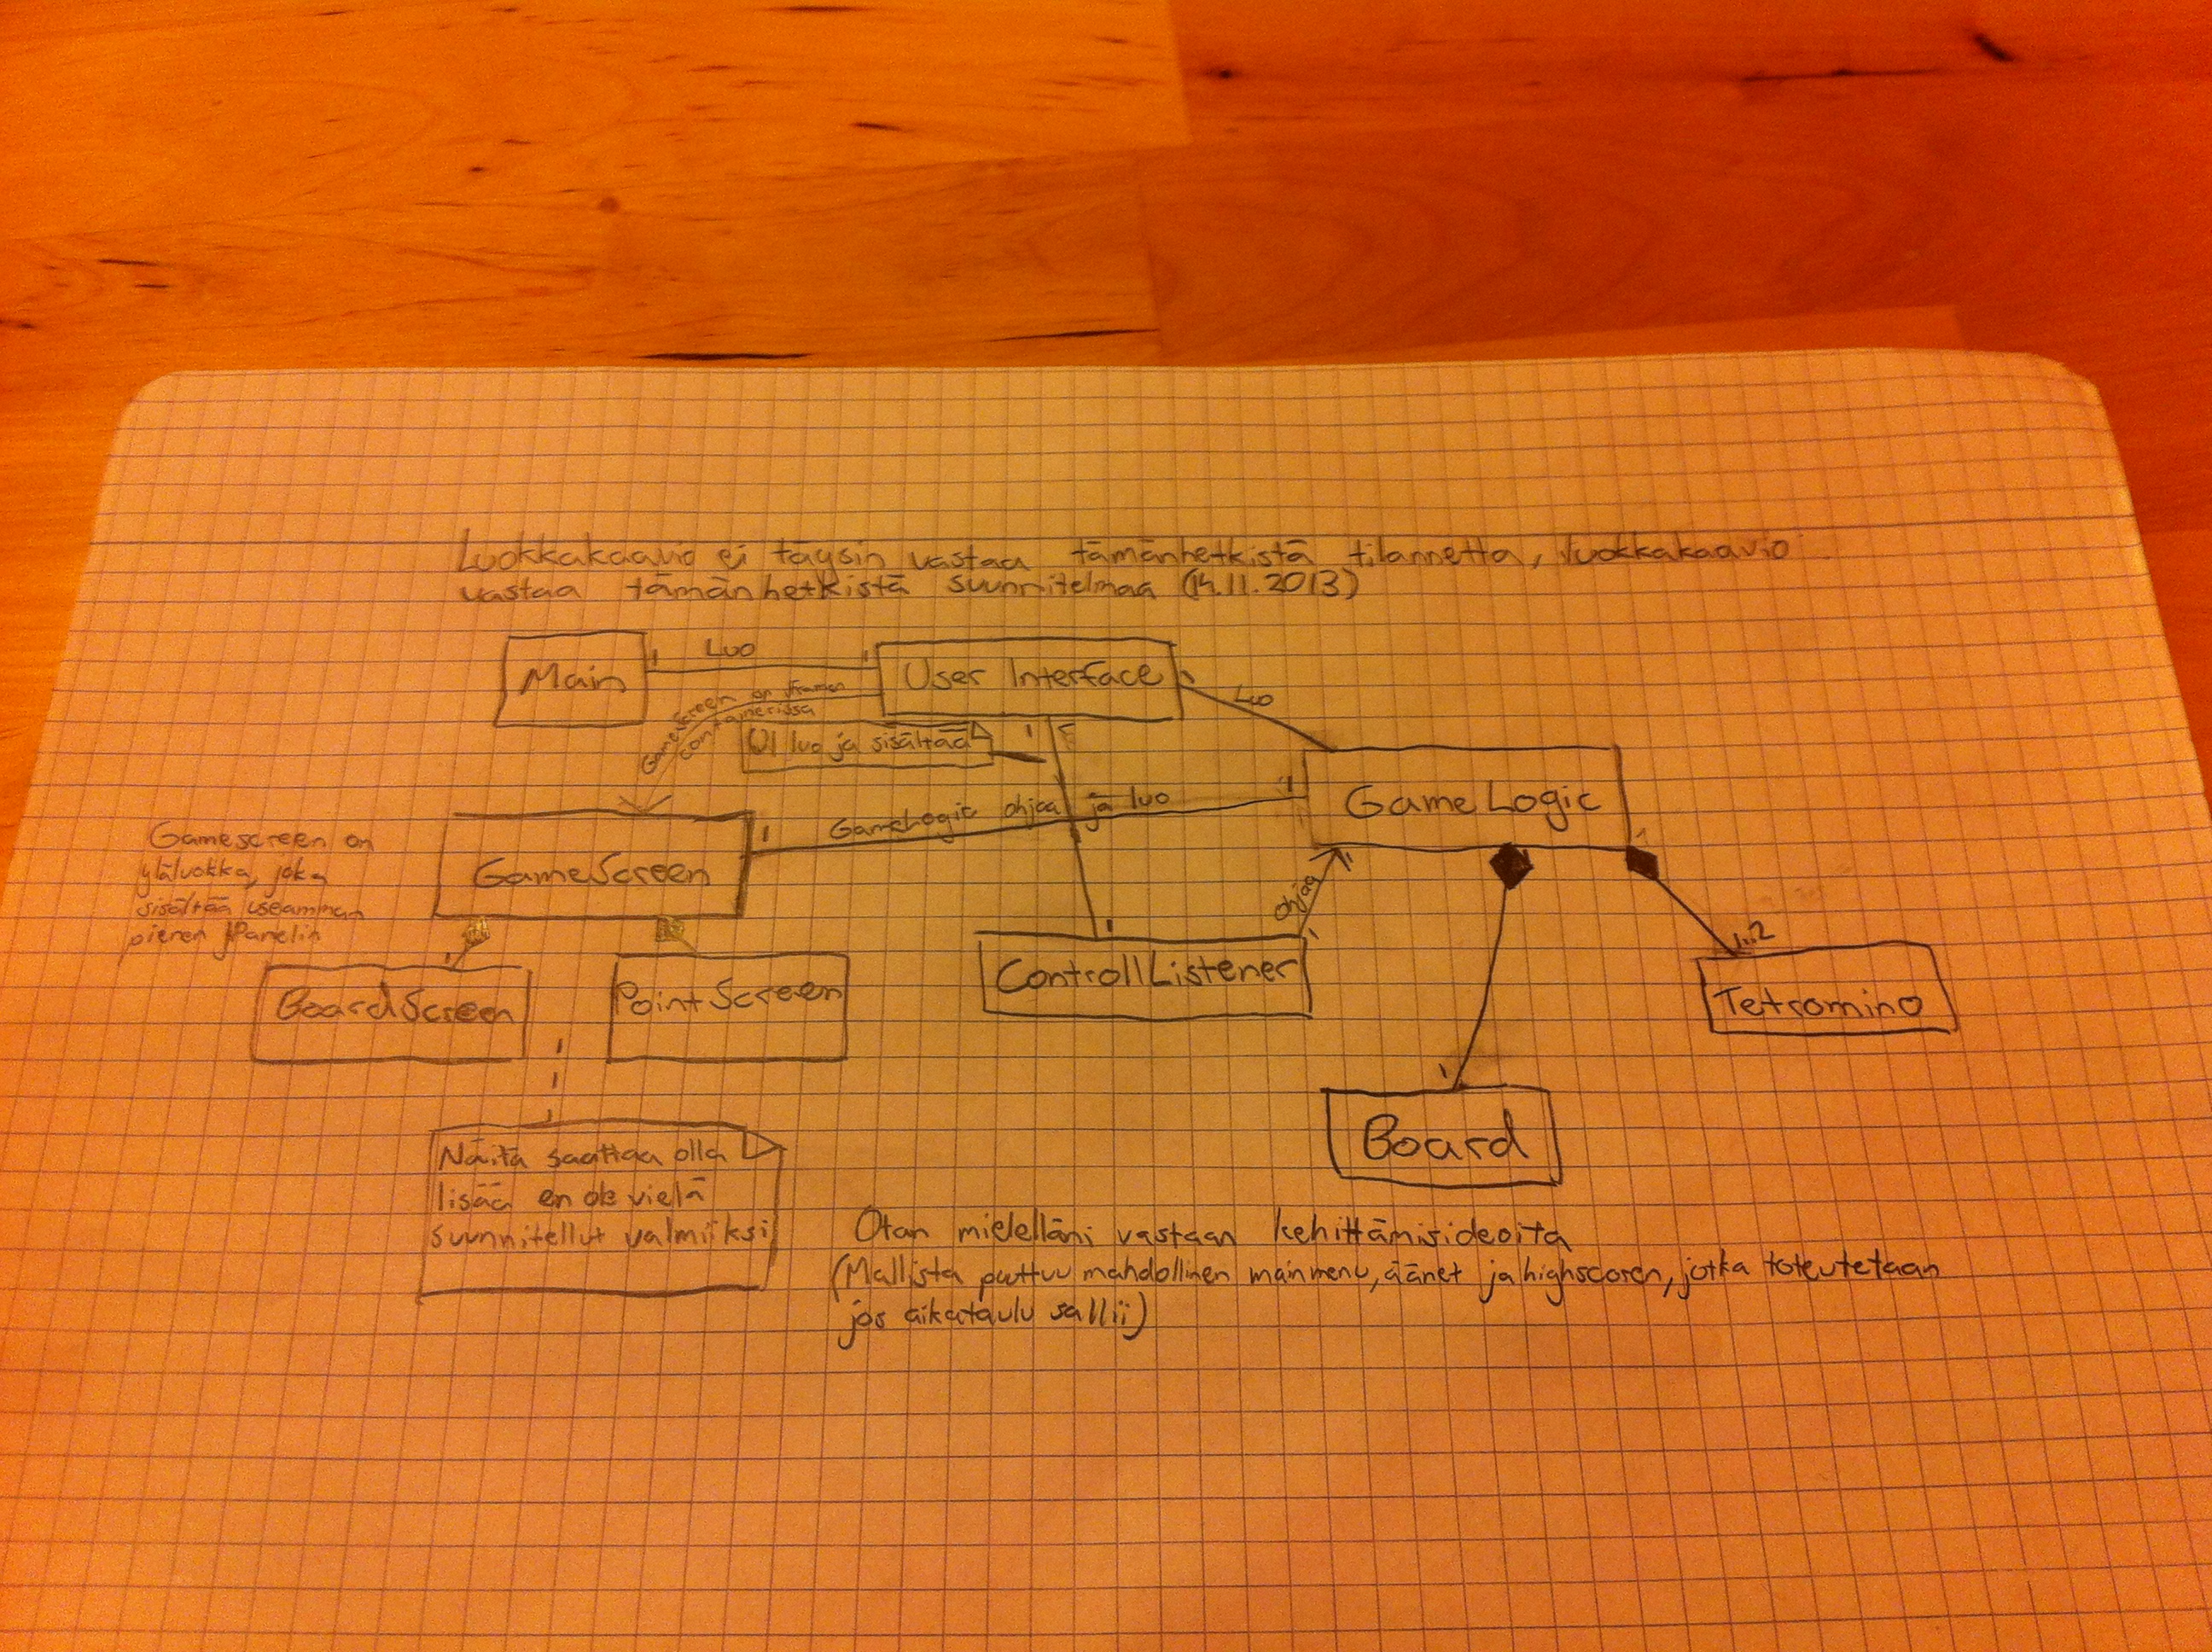 Luokkakaavio ei täysin vastaa tämänhetkistä tilannetta, luokkakaavio
vastaa tämänhetkistä suunnitelmaa (14.11.2013)
Main
1 Luo 1
User Interface
1 Luo
GameScreen on
containerissa
UI luo ja sisältää
1
GameLogic
GameScreen
1 GameLogic ohjaa ja luo 1
Gamescreen on
yläluokka, joka
sisältää useamman
pienen JPanelin
ohjaa
1
1
BoardScreen
PointScreen
ControllListener
1..2
Tetromino
1
Board
Näitä saattaa olla
lisää en ole vielä
suunnitellut valmiiksi
Otan mielelläni vastaan kehittämisideoita
(Mallista puttuu mahdollinen mainmenu, äänet ja highscoren, jotka toteutetaan
jos aikataulu sallii)